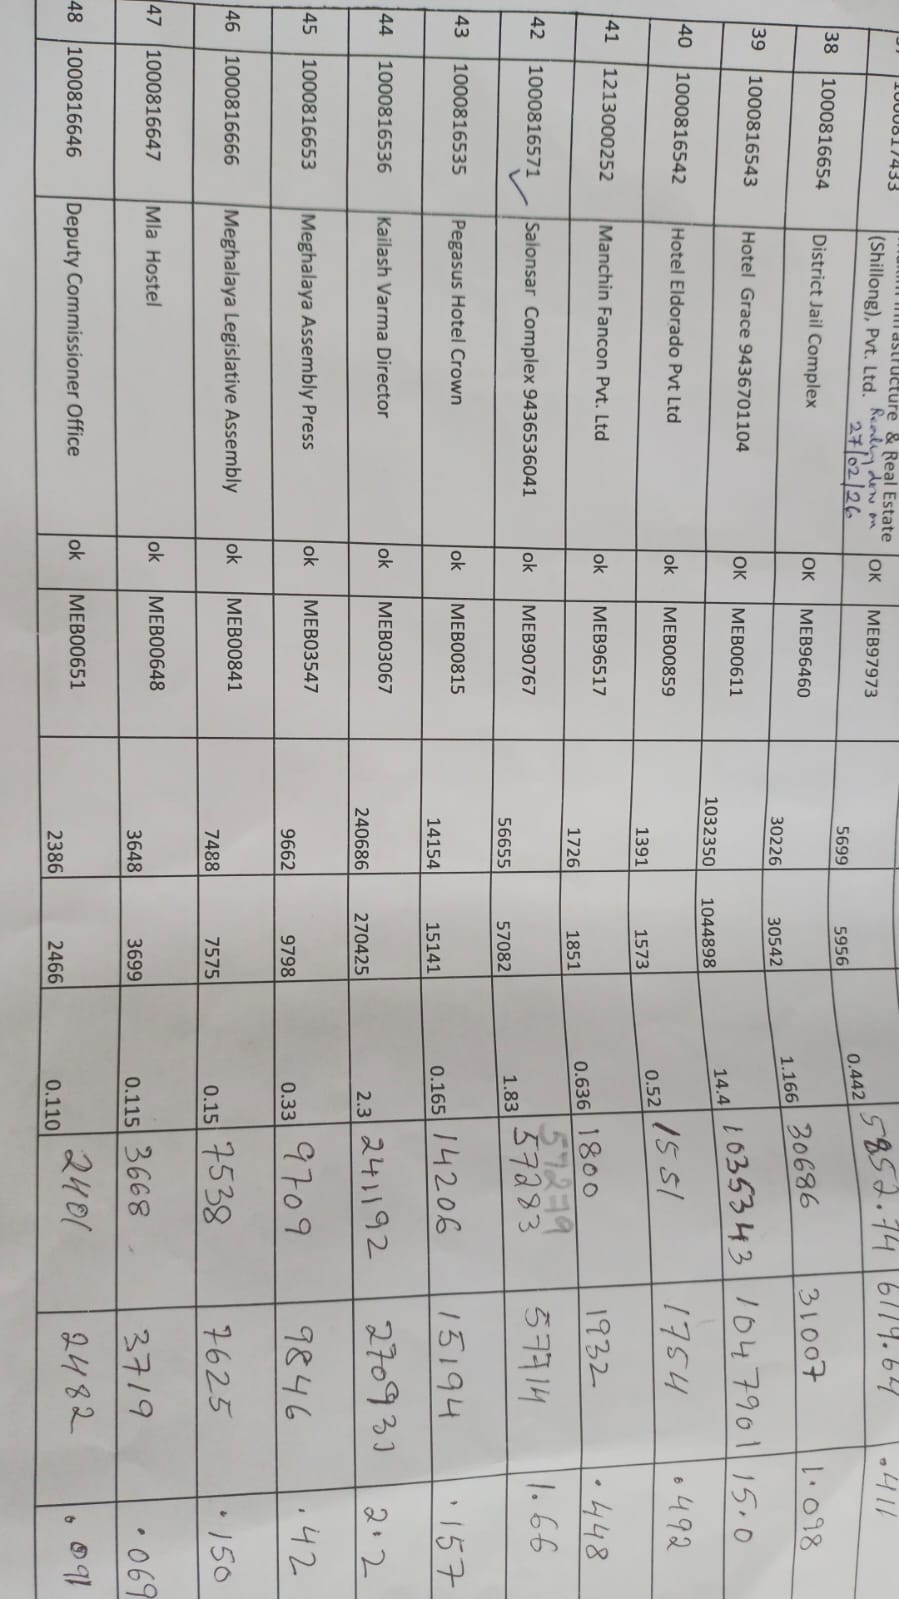 (Shillong), Pvt. Ltd. & Real Estate OK MEB97973 5699 5956 0.442 5852.74 6119.64 .411
27/02/26
38 1000816654 District Jail Complex OK MEB96460 30226 30542 1.166 30686 31007 1.098
39 1000816543 Hotel Grace 9436701104 OK MEB00611 1032350 1044898 14.4 1035343 1047901 15.0
40 1000816542 Hotel Eldorado Pvt Ltd ok MEB00859 1391 1573 0.52 1551 1754 .492
41 1213000252 Manchin Fancon Pvt. Ltd ok MEB96517 1726 1851 0.636 1800 1932 .448
42 1000816571 Salonsar Complex 9436536041 ok MEB90767 56655 57082 1.83 57283 57714 1.66
43 1000816535 Pegasus Hotel Crown ok MEB00815 14154 15141 0.165 14206 15194 .157
44 1000816536 Kailash Varma Director ok MEB03067 240686 270425 2.3 241192 2.2
45 1000816653 Meghalaya Assembly Press ok MEB03547 9662 9798 0.33 9709 9846 .42
46 1000816666 Meghalaya Legislative Assembly ok MEB00841 7488 7575 0.15 7538 7625 .150
47 1000816647 Mla Hostel ok MEB00648 3648 3699 0.115 3668 3719 .069
48 1000816646 Deputy Commissioner Office ok MEB00651 2386 2466 0.110 2401 2482 .091